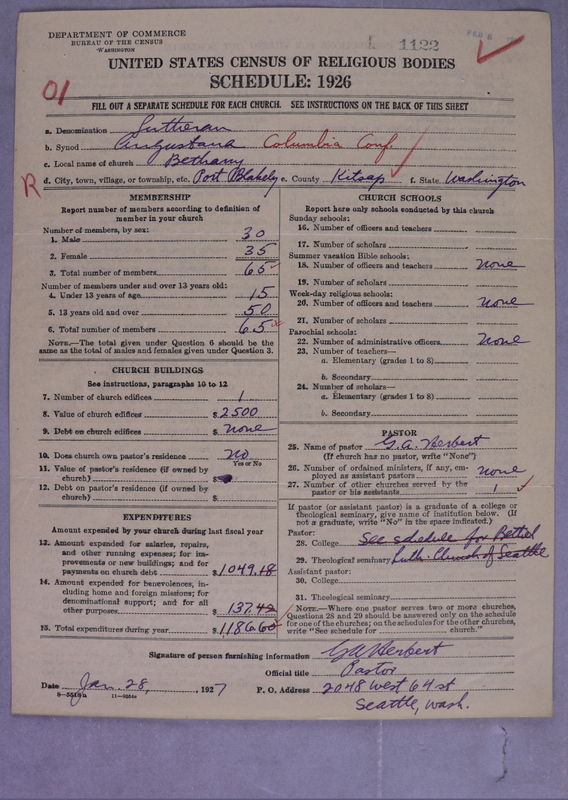 DEPARTMENT OF COMMERCE
BUREAU OF THE CENSUS
WASHINGTON
1122
FEB
UNITED STATES CENSUS OF RELIGIOUS BODIES
SCHEDULE: 1926
01
FILL OUT A SEPARATE SCHEDULE FOR EACH CHURCH. SEE INSTRUCTIONS ON THE BACK OF THIS SHEET
a. Denomination Lutheran
b. Synod Augustana Columbia Conf.
c. Local name of church Bethany
R d. City, town, village, or township, etc. Port Blakely e. County Kitsap f. State Washington
MEMBERSHIP
Report number of members according to definition of
member in your church
Number of members, by sex:
1. Male 30
2. Female 35
3. Total number of members 65
Number of members under and over 13 years old:
4. Under 13 years of age 15
5. 13 years old and over 50
6. Total number of members 65
NOTE.—The total given under Question 6 should be the
same as the total of males and females given under Question 3.
CHURCH BUILDINGS
See instructions, paragraphs 10 to 12
7. Number of church edifices 1
8. Value of church edifices $ 2500
9. Debt on church edifices $ none
10. Does church own pastor's residence? no
Yes or No
11. Value of pastor's residence (if owned by
church) $
12. Debt on pastor's residence (if owned by
church) $
EXPENDITURES
Amount expended by your church during last fiscal year
13. Amount expended for salaries, repairs,
and other running expenses; for im-
provements or new buildings; and for
payments on church debt $ 1049.18
14. Amount expended for benevolences, in-
cluding home and foreign missions; for
denominational support; and for all
other purposes 137.42
15. Total expenditures during year $ 1186.60
CHURCH SCHOOLS
Report here only schools conducted by this church
Sunday schools:
16. Number of officers and teachers
17. Number of scholars
Summer vacation Bible schools:
18. Number of officers and teachers none
19. Number of scholars
Week-day religious schools:
20. Number of officers and teachers none
21. Number of scholars
Parochial schools:
22. Number of administrative officers none
23. Number of teachers—
a. Elementary (grades 1 to 8)
b. Secondary
24. Number of scholars—
a. Elementary (grades 1 to 8)
b. Secondary
PASTOR
25. Name of pastor G.A. Herbert
(If church has no pastor, write "None")
26. Number of ordained ministers, if any, em-
ployed as assistant pastors none
27. Number of other churches served by the
pastor or his assistants 1
If pastor (or assistant pastor) is a graduate of a college or
theological seminary, give name of institution below. (If
not a graduate, write "No" in the space indicated.)
Pastor:
28. College See schedule for Bethel
29. Theological seminary Luth. Church of Seattle
Assistant pastor:
30. College
31. Theological seminary
NOTE.—Where one pastor serves two or more churches,
Questions 28 and 29 should be answered only on the schedule
for one of the churches; on the schedules for the other churches,
write "See schedule for church."
Signature of person furnishing information GA Herbert
Official title Pastor
Date Jan. 28, 1927 P. O. Address 2048 West 64 st
Seattle, Wash.